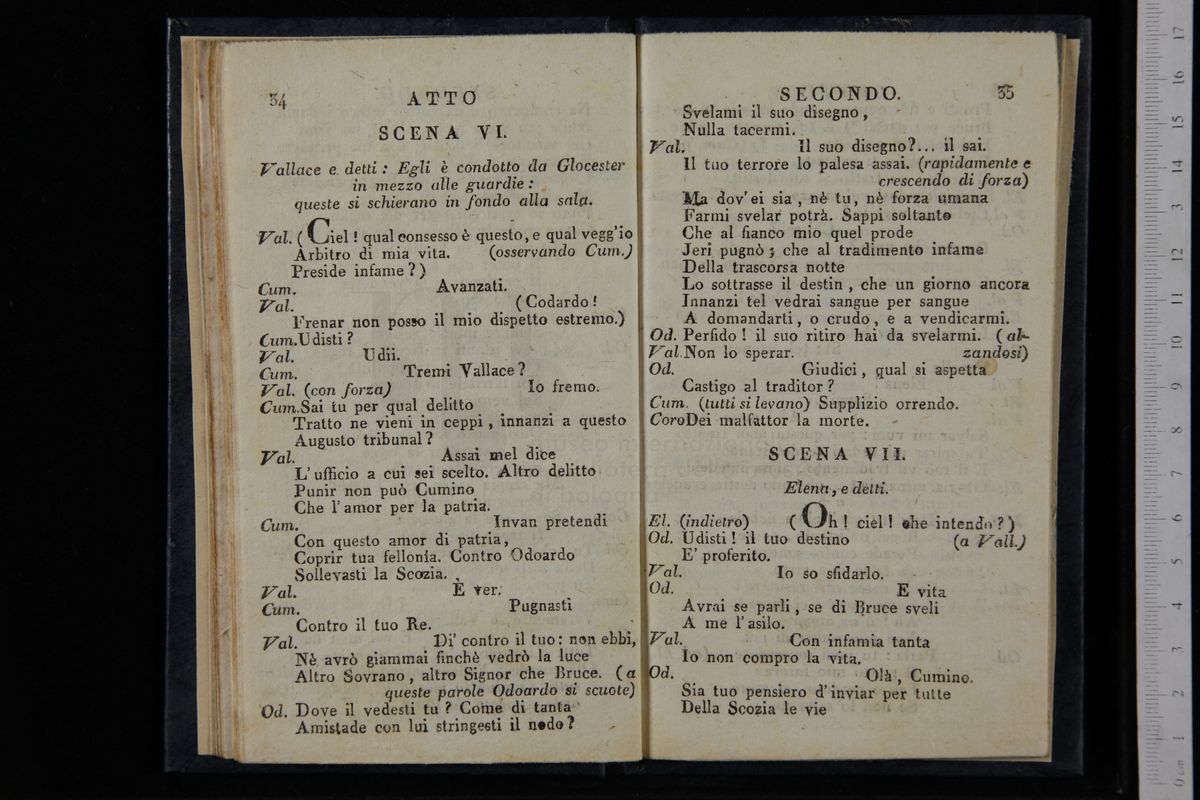 34 ATTO
SCENA VI.
Vallace e detti : Egli è condotto da Glocester
in mezzo alle guardie :
queste si schierano in fondo alla sala.
Val. ( Ciel ! qual consesso è questo, e qual vegg'io
Arbitro di mia vita. (osservando Cum.)
Preside infame ? )
Cum. Avanzati.
Val. ( Codardo !
Frenar non posso il mio dispetto estremo.)
Cum. Udisti ?
Val. Udii.
Cum. Tremi Vallace ?
Val. (con forza) Io fremo.
Cum. Sai tu per qual delitto
Tratto ne vieni in ceppi , innanzi a questo
Augusto tribunal ?
Val. Assai mel dice
L'ufficio a cui sei scelto. Altro delitto
Punir non può Cumino
Che l'amor per la patria.
Cum. Invan pretendi
Con questo amor di patria,
Coprir tua fellonìa. Contro Odoardo
Sollevasti la Scozia.
Val. È ver.
Cum. Pugnasti
Contro il tuo Re.
Val. Di' contro il tuo : non ebbi,
Nè avrò giammai finchè vedrò la luce
Altro Sovrano , altro Signor che Bruce. (a
queste parole Odoardo si scuote)
Od. Dove il vedesti tu ? Come di tanta
Amistade con lui stringesti il nodo ?
SECONDO. 35
Svelami il suo disegno ,
Nulla tacermi.
Val. Il suo disegno?... il sai.
Il tuo terrore lo palesa assai. (rapidamente e
crescendo di forza)
Ma dov'ei sia , nè tu , nè forza umana
Farmi svelar potrà. Sappi soltanto
Che al fianco mio quel prode
Jeri pugnò ; che al tradimento infame
Della trascorsa notte
Lo sottrasse il destin , che un giorno ancora
Innanzi tel vedrai sangue per sangue
A domandarti , o crudo , e a vendicarmi.
Od. Perfido ! il suo ritiro hai da svelarmi. (al-
Val. Non lo sperar. zandosi)
Od. Giudici , qual si aspetta
Castigo al traditor ?
Cum. (tutti si levano) Supplizio orrendo.
Coro Dei malfattor la morte.
SCENA VII.
Elena, e detti.
El. (indietro) ( Oh ! ciel ! che intendo ? )
Od. Udisti ! il tuo destino (a Vall.)
E' proferito.
Val. Io so sfidarlo.
Od. E vita
Avrai se parli , se di Bruce sveli
A me l'asilo.
Val. Con infamia tanta
Io non compro la vita.
Od. Olà , Cumino.
Sia tuo pensiero d'inviar per tutte
Della Scozia le vie
17
16
15
14
13
12
11
10
9
8
7
6
5
4
3
2
1
0 cm